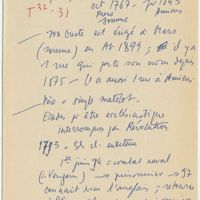 T 32-31
oct 1767 - juil 1843
Mers Amiens
Somme
- son buste est érigé à Mers
(Somme) en At 1899 ; il y a
1 rue qui porte son nom depuis
1875 - Il y a aussi 1 rue à Amiens
simple matelot.
Etudes pr être ecclésiastique
interrompues par Révolution
1793 =
1er juin 94 = combat naval
(Vengeur) prisonnier 97
connait bien l'anglais ; retourne